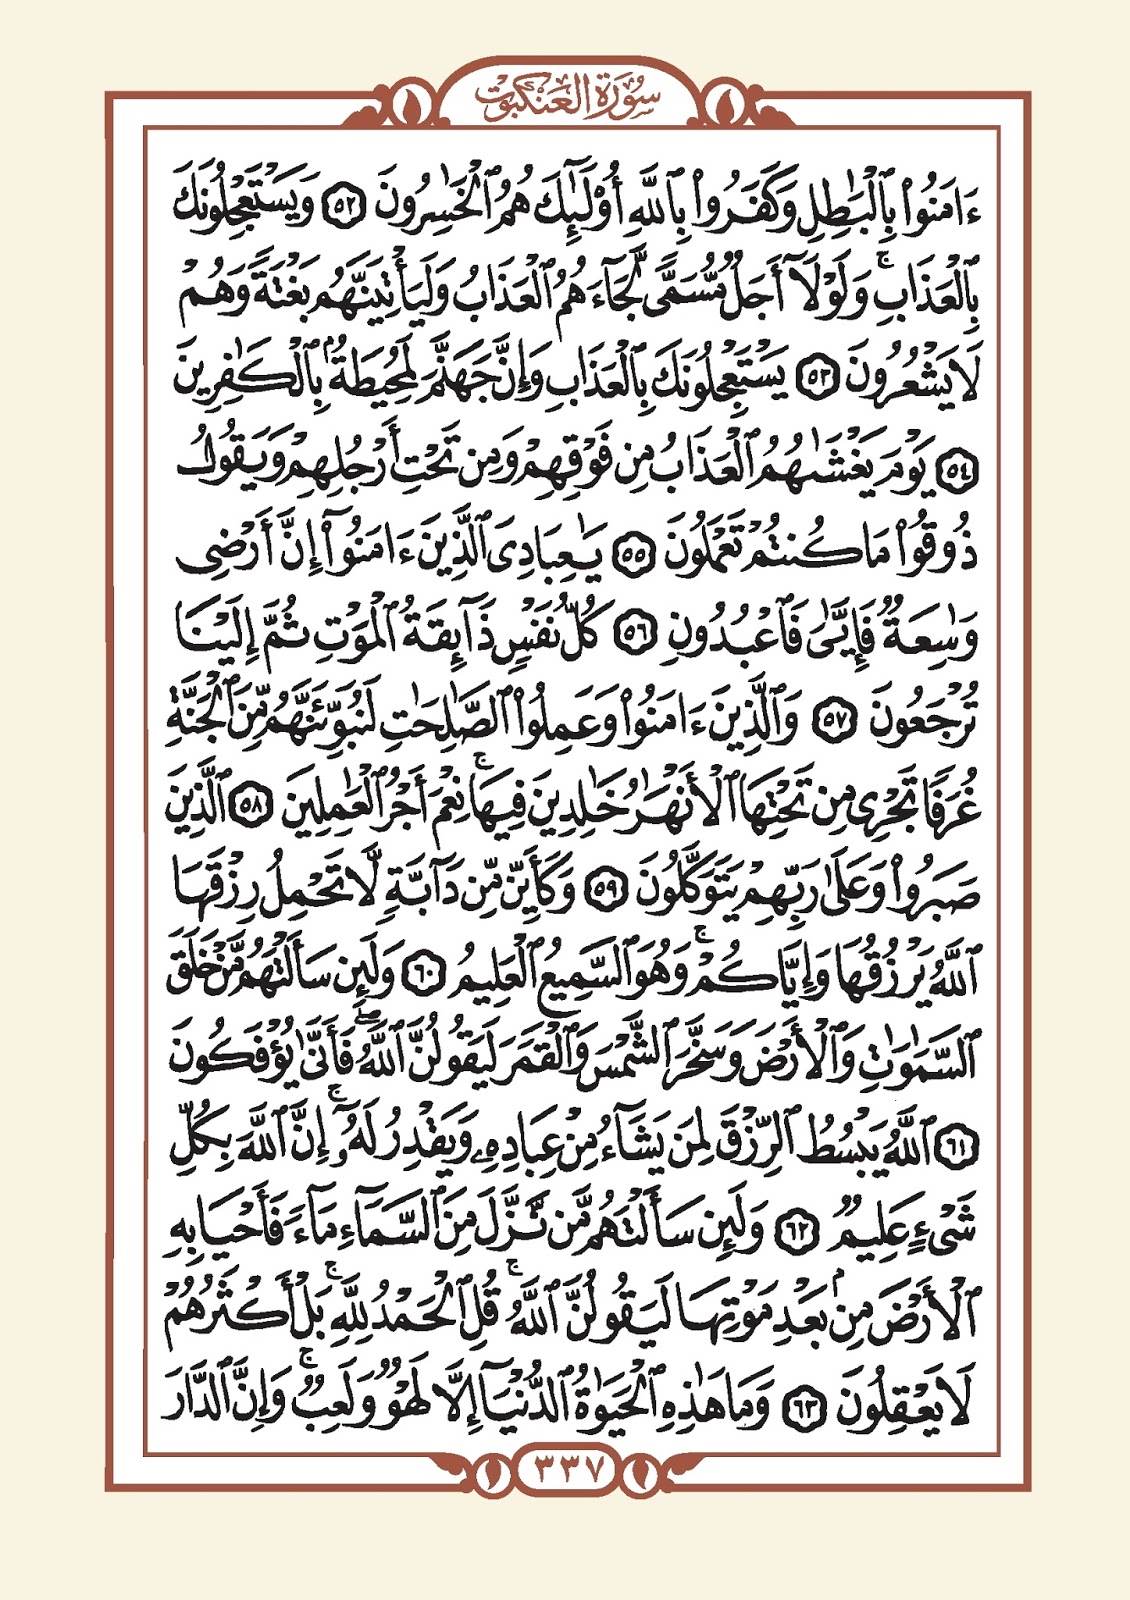 سُورَةُ العَنكَبُوتِ
ءَامَنُوا۟ بِٱلْبَـٰطِلِ وَكَفَرُوا۟ بِٱللَّهِ أُو۟لَـٰٓئِكَ هُمُ ٱلْخَـٰسِرُونَ ٥٢ وَيَسْتَعْجِلُونَكَ
بِٱلْعَذَابِ ۚ وَلَوْلَآ أَجَلٌ مُّسَمًّى لَّجَآءَهُمُ ٱلْعَذَابُ وَلَيَأْتِيَنَّهُم بَغْتَةً وَهُمْ
لَا يَشْعُرُونَ ٥٣ يَسْتَعْجِلُونَكَ بِٱلْعَذَابِ وَإِنَّ جَهَنَّمَ لَمُحِيطَةٌۢ بِٱلْكَـٰفِرِينَ
٥٤ يَوْمَ يَغْشَىٰهُمُ ٱلْعَذَابُ مِن فَوْقِهِمْ وَمِن تَحْتِ أَرْجُلِهِمْ وَيَقُولُ
ذُوقُوا۟ مَا كُنتُمْ تَعْمَلُونَ ٥٥ يَـٰعِبَادِىَ ٱلَّذِينَ ءَامَنُوٓا۟ إِنَّ أَرْضِى
وَٰسِعَةٌ فَإِيَّـٰىَ فَٱعْبُدُونِ ٥٦ كُلُّ نَفْسٍ ذَآئِقَةُ ٱلْمَوْتِ ثُمَّ إِلَيْنَا
تُرْجَعُونَ ٥٧ وَٱلَّذِينَ ءَامَنُوا۟ وَعَمِلُوا۟ ٱلصَّـٰلِحَـٰتِ لَنُبَوِّئَنَّهُم مِّنَ ٱلْجَنَّةِ
غُرَفًا تَجْرِى مِن تَحْتِهَا ٱلْأَنْهَـٰرُ خَـٰلِدِينَ فِيهَا ۚ نِعْمَ أَجْرُ ٱلْعَـٰمِلِينَ ٥٨ ٱلَّذِينَ
صَبَرُوا۟ وَعَلَىٰ رَبِّهِمْ يَتَوَكَّلُونَ ٥٩ وَكَأَيِّن مِّن دَآبَّةٍ لَّا تَحْمِلُ رِزْقَهَا
ٱللَّهُ يَرْزُقُهَا وَإِيَّاكُمْ ۚ وَهُوَ ٱلسَّمِيعُ ٱلْعَلِيمُ ٦٠ وَلَئِن سَأَلْتَهُم مَّنْ خَلَقَ
ٱلسَّمَـٰوَٰتِ وَٱلْأَرْضَ وَسَخَّرَ ٱلشَّمْسَ وَٱلْقَمَرَ لَيَقُولُنَّ ٱللَّهُ ۖ فَأَنَّىٰ يُؤْفَكُونَ
٦١ ٱللَّهُ يَبْسُطُ ٱلرِّزْقَ لِمَن يَشَآءُ مِنْ عِبَادِهِۦ وَيَقْدِرُ لَهُۥٓ ۚ إِنَّ ٱللَّهَ بِكُلِّ
شَىْءٍ عَلِيمٌ ٦٢ وَلَئِن سَأَلْتَهُم مَّن نَّزَّلَ مِنَ ٱلسَّمَآءِ مَآءً فَأَحْيَا بِهِ
ٱلْأَرْضَ مِنۢ بَعْدِ مَوْتِهَا لَيَقُولُنَّ ٱللَّهُ ۚ قُلِ ٱلْحَمْدُ لِلَّهِ ۚ بَلْ أَكْثَرُهُمْ
لَا يَعْقِلُونَ ٦٣ وَمَا هَـٰذِهِ ٱلْحَيَوٰةُ ٱلدُّنْيَآ إِلَّا لَهْوٌ وَلَعِبٌ ۚ وَإِنَّ ٱلدَّارَ
٣٣٧